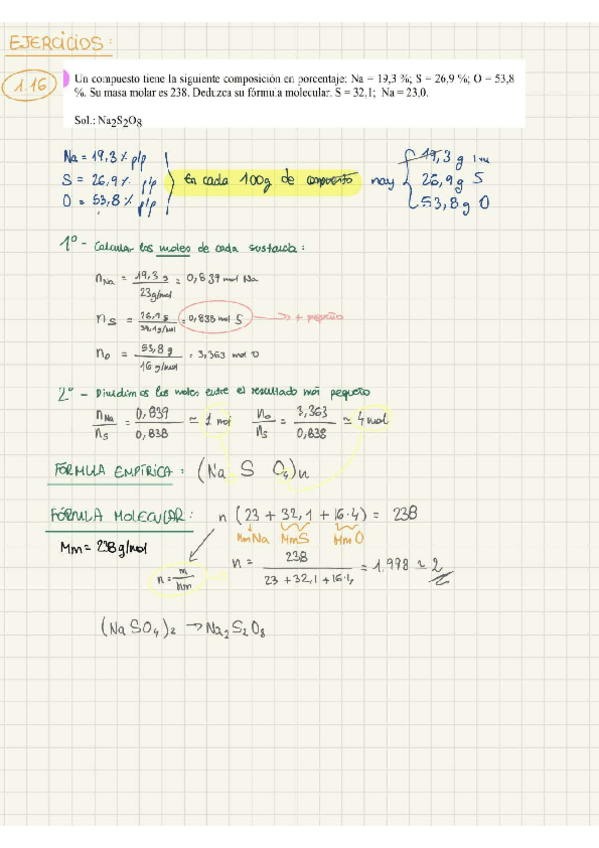 EJERCICIOS:
1.16
Un compuesto tiene la siguiente composición en porcentaje: Na = 19,3 %; S = 26,9 %; O = 53,8
%. Su masa molar es 238. Deduzca su fórmula molecular. S = 32,1; Na = 23,0.
Sol.: Na2S2O8
Na = 19,3 % p/p
S = 26,9 % p/p
O = 53,8 % p/p
En cada 100g de compuesto hay
19,3 g
26,9 g S
53,8 g O
1º - Calcular los moles de cada sustancia:
nNa = 19,3 g / 23 g/mol = 0,839 mol Na
nS = 26,9 g / 32,1 g/mol = 0,838 mol S → + pequeño
nO = 53,8 g / 16 g/mol = 3,363 mol O
2º - Dividimos los moles entre el resultado más pequeño
nNa / nS = 0,839 / 0,838 ≃ 1 mol nO / nS = 3,363 / 0,838 ≃ 4 mol
FÓRMULA EMPÍRICA: (Na S O4)n
FÓRMULA MOLECULAR: n (23 + 32,1 + 16·4) = 238
Mm = 238 g/mol
MmNa MmS MmO
n = m / Mm
n = 238 / 23 + 32,1 + 16·4 = 1,998 ≃ 2
(Na SO4)2 → Na2 S2 O8